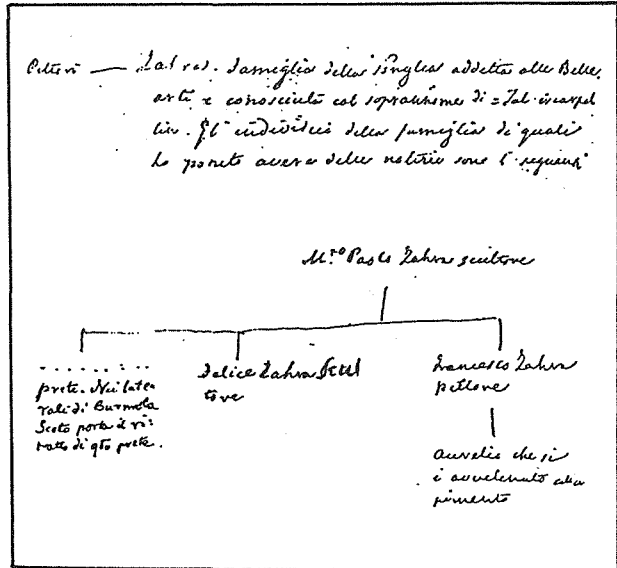 Pittori — Zahra. Famiglia della Senglea addetta alle Belle
arti e conosciuta col soprannome di = Tal-iscarpel
lin. Gl' individui della famiglia di quali
ho potuto avere delle notizie sono i seguenti
M.ro Paolo Zahra scultore
. . . . . . . .
prete. Nei late
rali di Burmola
Scoto porta il ri:
tratto di qto prete.
Felice Zahra Scul
tore
Francesco Zahra
pittore
Aurelio che si
è avvelenato
pimento